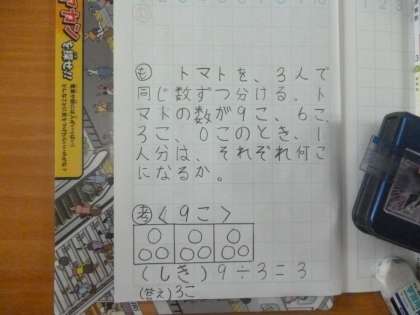 を探せ!!
も トマトを、3人で
同じ数ずつ分ける。ト
マトの数が9こ、6こ、
3こ、0このとき、1
人分は、それぞれ何こ
になるか。
考 〈9こ〉
(しき) 9÷3=3
(答え) 3こ
1 2 3